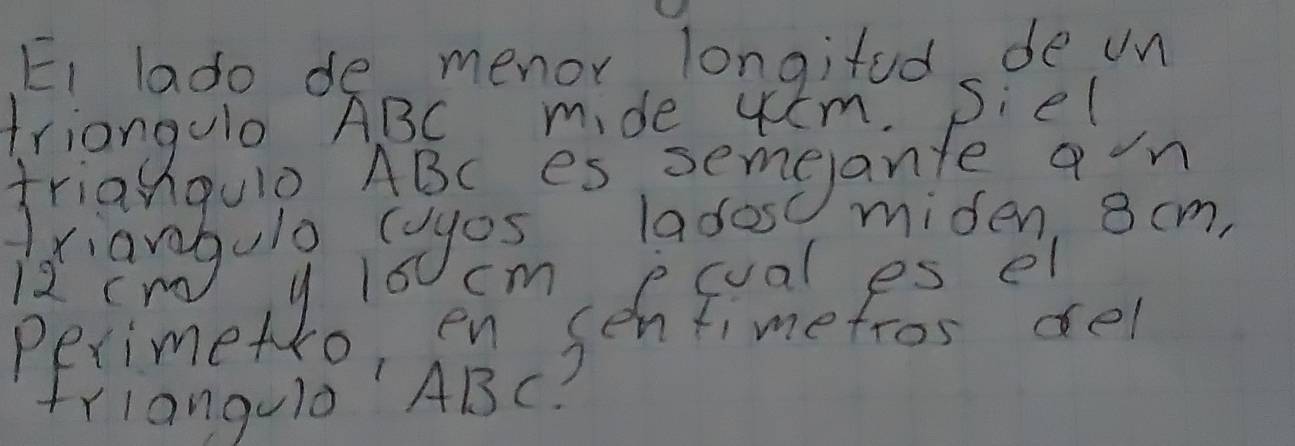 El lado de menor longitud de un
triangulo ABC mide 4cm. Si el
triangulo ABC es semejante a un
triangulo cuyos lados miden, 8cm,
12 cm y cm cual es el
Perimetro, en sentimetros del
triangulo ABC?